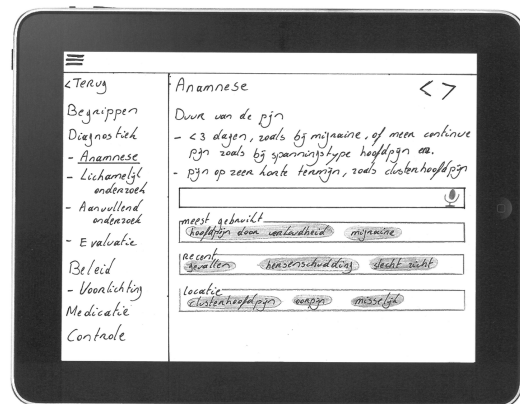 < Terug
Begrippen
Diagnostiek
- Anamnese
- Lichamelijk
onderzoek
- Aanvullend
onderzoek
- Evaluatie
Beleid
- Voorlichting
Medicatie
Controle
Anamnese
< >
Duur van de pijn
- < 3 dagen, zoals bij migraine, of meer continue
pijn zoals bij spanningstype hoofdpijn en.
- pijn op zeer korte termijn, zoals clusterhoofdpijn
meest gebruikt
hoofdpijn door verkoudheid migraine
Recent
gevallen hersenschudding slecht zicht
locatie
clusterhoofdpijn oorpijn misselijk